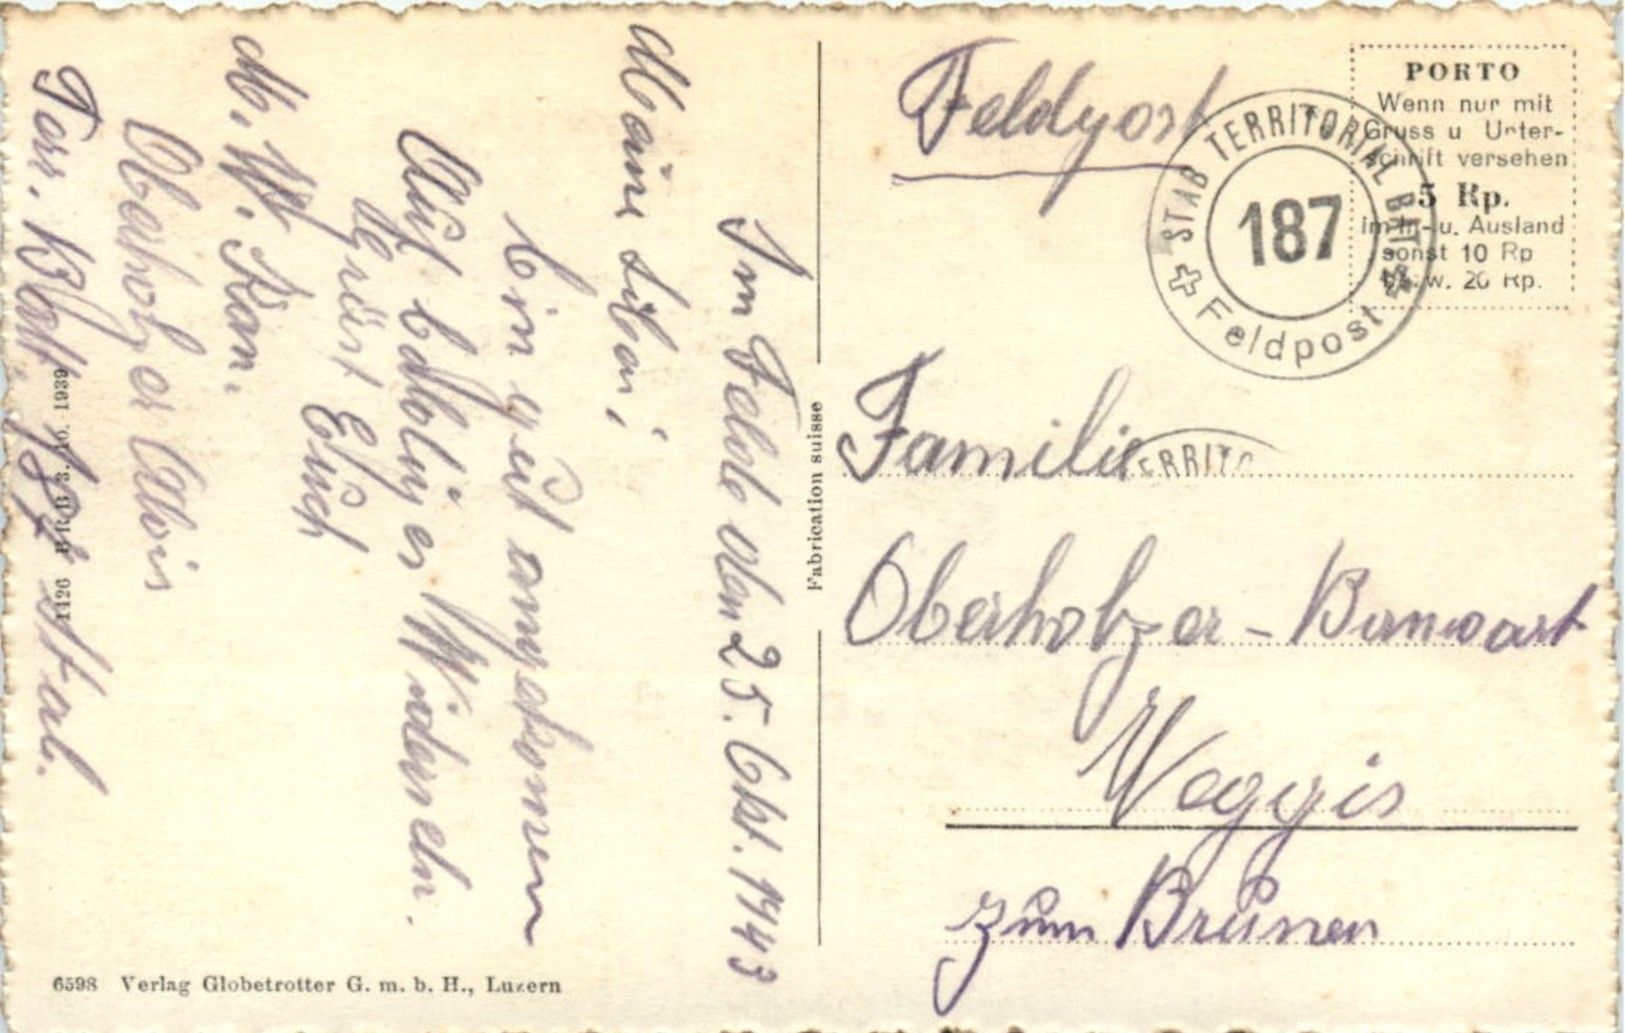 Im Felde den 25. Okt. 1943
Meine Liben;
Bin gut angekomen
Auf baldiges Widersehn.
Grüst Euch
M. W. Kan.
Oberholzer Alois
Terr. Bat. 187 Stab.
Feldpost
STAB TERRITORIAL BAT
187
Feldpost
PORTO
Wenn nur mit
Gruss u Unter-
schrift versehen
5 Rp.
im In- u. Ausland
sonst 10 Rp
bzw. 20 Rp.
Familie
TERRITO
Oberholzer - Banwart
Weggis
zum Brunen
Fabrication suisse
1126 BRB 3. 10. 1939
6598 Verlag Globetrotter G. m. b. H., Luzern